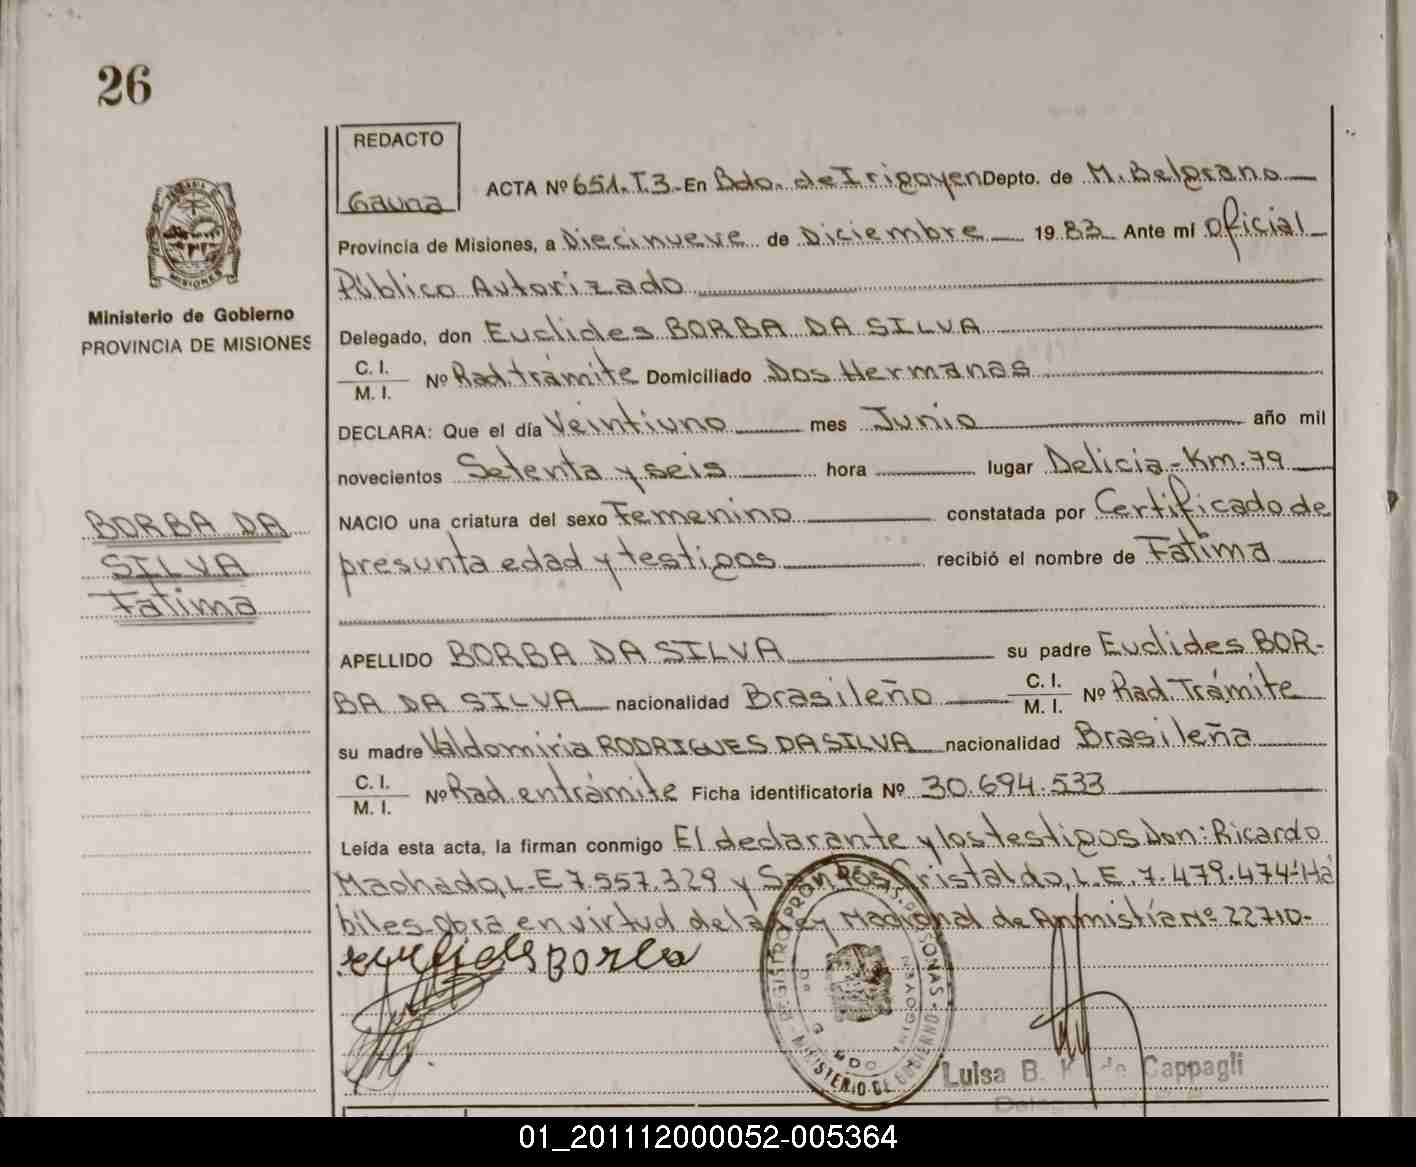 26
REDACTO
Gauna
ACTA Nº 651.T.3. En Bdo. de Irigoyen Depto. de M. Belgrano
Provincia de Misiones, a Diecinueve de Diciembre 19 83 Ante mí Oficial
Público Autorizado
MISIONES
Ministerio de Gobierno
PROVINCIA DE MISIONES
Delegado, don Euclides BORBA DA SILVA
C. I.
M. I.
Nº Rad. trámite Domiciliado Dos Hermanas
DECLARA: Que el día Veintiuno mes Junio año mil
novecientos Setenta y seis hora lugar Delicia-Km. 79
BORBA DA
SILVA
Fatima
NACIO una criatura del sexo Femenino constatada por Certificado de
presunta edad y testigos recibió el nombre de Fatima
APELLIDO BORBA DA SILVA su padre Euclides BOR-
BA DA SILVA nacionalidad Brasileño C. I. M. I. Nº Rad. Trámite
su madre Valdomiria RODRIGUES DA SILVA nacionalidad Brasileña
C. I.
M. I.
Nº Rad. en trámite Ficha identificatoria Nº 30.694.533
Leída esta acta, la firman conmigo El declarante y los testigos Don: Ricardo
Machado, L.E 7.557.329 y Santos Cristaldo, L.E. 7.479.474-Há
biles-Obra en virtud de la Ley Nacional de Anmistía Nº 22710-
Euclides Borba
REGISTRO PROV. DE LAS PERSONAS
MINISTERIO DE GOBIERNO
BDO. IRIGOYEN
Luisa B. de Cappagli
01_201112000052-005364